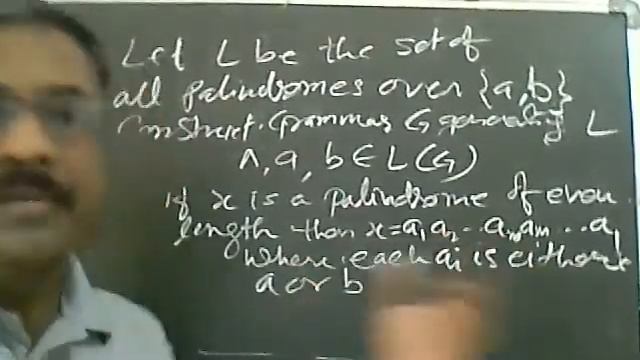 Let L be the set of
all palindromes over {a,b}
Construct Grammar G generating L
Λ, a, b ∈ L(G)
If x is a palindrome of even
length then x=a₁a₂...aₘaₘ...a₁
where each aᵢ is either
a or b